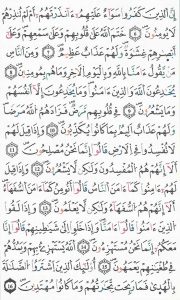 إِنَّ ٱلَّذِينَ كَفَرُوا۟ سَوَآءٌ عَلَيْهِمْ ءَأَنذَرْتَهُمْ أَمْ لَمْ تُنذِرْهُمْ
لَا يُؤْمِنُونَ ٦ خَتَمَ ٱللَّهُ عَلَىٰ قُلُوبِهِمْ وَعَلَىٰ سَمْعِهِمْ وَعَلَىٰٓ
أَبْصَٰرِهِمْ غِشَٰوَةٌ وَلَهُمْ عَذَابٌ عَظِيمٌ ٧ وَمِنَ ٱلنَّاسِ
مَن يَقُولُ ءَامَنَّا بِٱللَّهِ وَبِٱلْيَوْمِ ٱلْءَاخِرِ وَمَا هُم بِمُؤْمِنِينَ ٨
يُخَٰدِعُونَ ٱللَّهَ وَٱلَّذِينَ ءَامَنُوا۟ وَمَا يَخْدَعُونَ إِلَّآ أَنفُسَهُمْ
وَمَا يَشْعُرُونَ ٩ فِى قُلُوبِهِم مَّرَضٌ فَزَادَهُمُ ٱللَّهُ مَرَضًا
وَلَهُمْ عَذَابٌ أَلِيمٌۢ بِمَا كَانُوا۟ يَكْذِبُونَ ١٠ وَإِذَا قِيلَ لَهُمْ
لَا تُفْسِدُوا۟ فِى ٱلْأَرْضِ قَالُوٓا۟ إِنَّمَا نَحْنُ مُصْلِحُونَ ١١
أَلَآ إِنَّهُمْ هُمُ ٱلْمُفْسِدُونَ وَلَٰكِن لَّا يَشْعُرُونَ ١٢ وَإِذَا قِيلَ
لَهُمْ ءَامِنُوا۟ كَمَآ ءَامَنَ ٱلنَّاسُ قَالُوٓا۟ أَنُؤْمِنُ كَمَآ ءَامَنَ ٱلسُّفَهَآءُ
أَلَآ إِنَّهُمْ هُمُ ٱلسُّفَهَآءُ وَلَٰكِن لَّا يَعْلَمُونَ ١٣ وَإِذَا لَقُوا۟
ٱلَّذِينَ ءَامَنُوا۟ قَالُوٓا۟ ءَامَنَّا وَإِذَا خَلَوْا۟ إِلَىٰ شَيَٰطِينِهِمْ قَالُوٓا۟ إِنَّا
مَعَكُمْ إِنَّمَا نَحْنُ مُسْتَهْزِءُونَ ١٤ ٱللَّهُ يَسْتَهْزِئُ بِهِمْ وَيَمُدُّهُمْ
فِى طُغْيَٰنِهِمْ يَعْمَهُونَ ١٥ أُو۟لَٰٓئِكَ ٱلَّذِينَ ٱشْتَرَوُا۟ ٱلضَّلَٰلَةَ
بِٱلْهُدَىٰ فَمَا رَبِحَت تِّجَٰرَتُهُمْ وَمَا كَانُوا۟ مُهْتَدِينَ ١٦